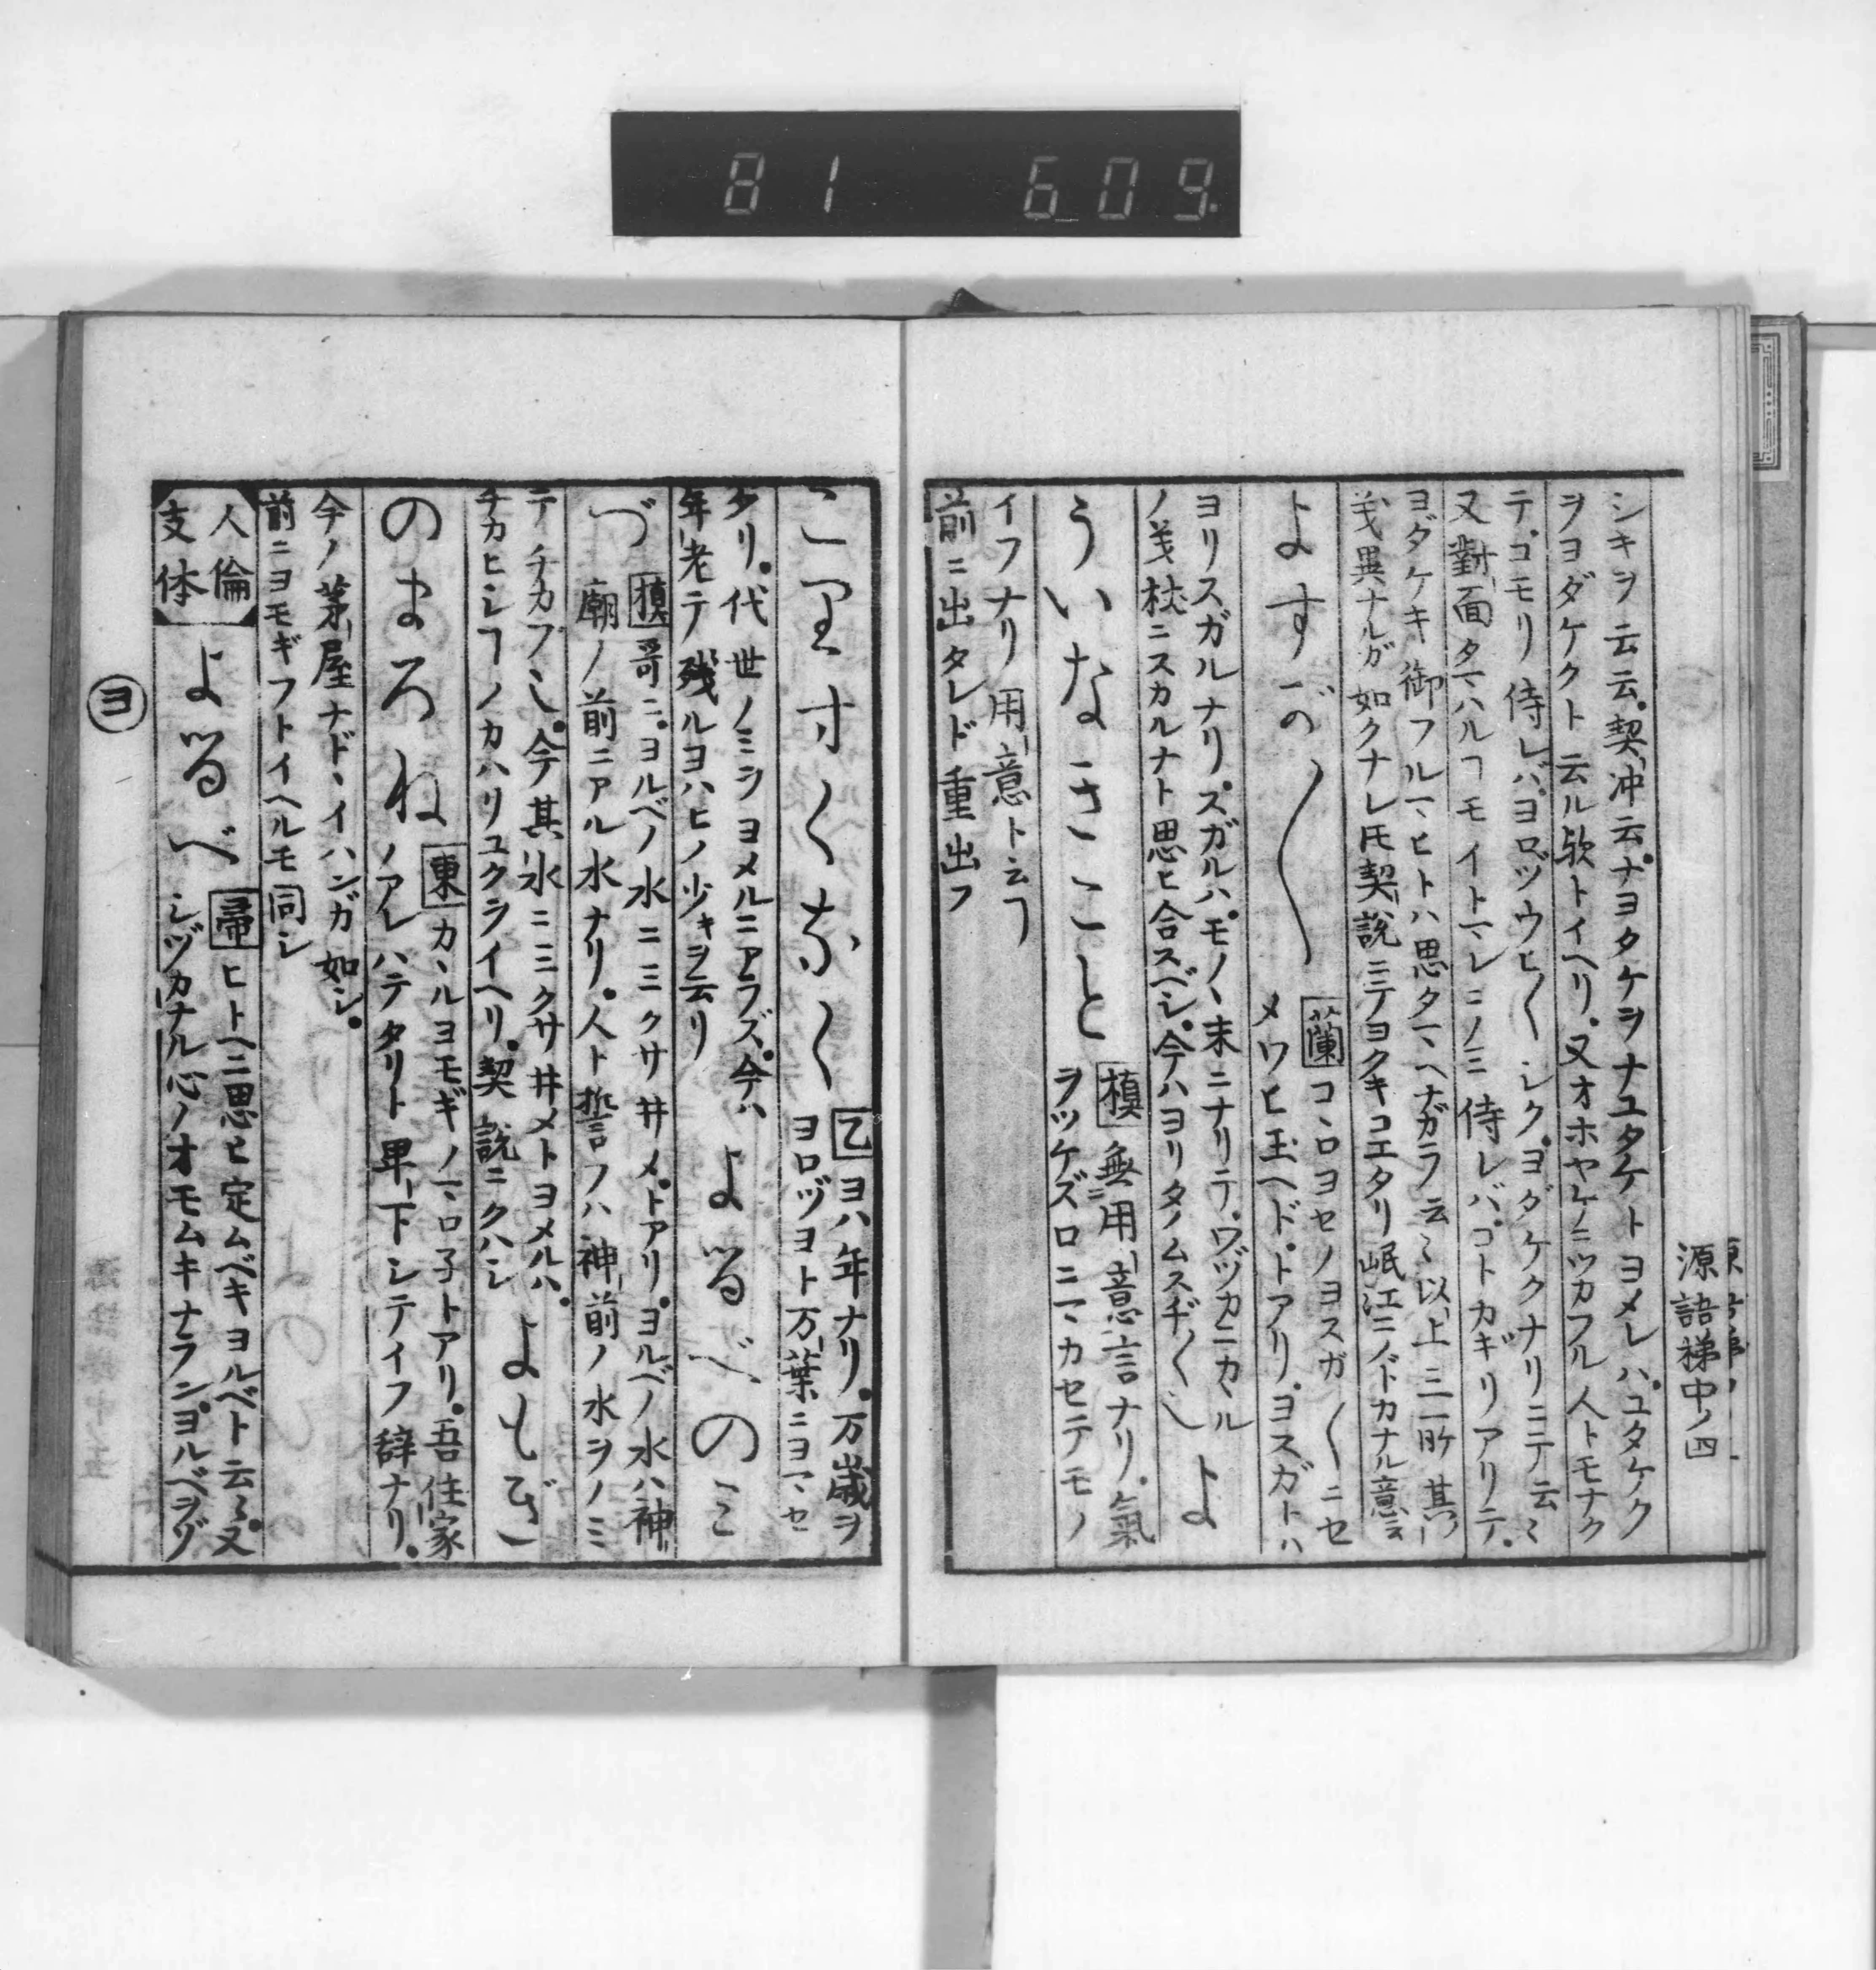 81 609
源語梯中ノ四
シキヲ云云。契冲云。ナヨタケヲナユタケトヨメレハ。ユタケク
ヲヨダケクト云ル欤トイヘリ。又オホヤケニツカフル人トモナク
テ。コモリ侍レバ。ヨロヅウヒ〱シク。ヨダケクナリニテ云〻
又對面タマハルヿモイトマレニノミ侍レバ。コトカギリアリテ。
ヨダケキ御フルマヒトハ思タマヘナガラ云〻以上三所其
義異ナルガ如クナレ𪜈契説ニテヨクキコエタリ岷江ニノドカナル意云云
よすが〱
蘭コヽロヨセノヨスガ〱ニセ
メワヒ玉ヘド。トアリ。ヨスガトハ
ヨリスガルナリ。スガルハ。モノヽ末ニナリテ。ワヅカニカヽル
ノ義杖ニスカルナト思ヒ合スベシ。今ハヨリタノムスヂ〱也
よ
ういなきこと
槙無用意言ナリ。氣
ヲツケズロニマカセテモノ
イフナリ用意ト云ヿ
前ニ出タレド重出フ
乙ヨハ年ナリ。万歳ヲ
ヨロヅヨト万葉ニヨマセ
タリ。代世ノミヲヨメルニアラズ。今ハ
年老テ残ルヨハヒノ少キヲ云リ
よるべのみ
づ
槙哥ニ。ヨルベノ水ニミクサ井メ。トアリ。ヨルベノ水ハ神
廟ノ前ニアル水ナリ。人ト誓フハ神前ノ水ヲノミ
テチカフ也。今其水ニミクサ井メトヨメルハ。
チカヒシヿノカハリユクライヘリ。契説ニクハシ
よもぎ
のまろね
東カヽルヨモギノマロ子トアリ。吾住家
ノアレハテタリト卑下シテイフ辞ナリ。
今ノ茅屋ナドヽイハンガ如シ。
前ニヨモギフトイヘルモ同シ
人倫
支体
よるべ
帚ヒトヘニ思ヒ定ムベキヨルベト云〻又
シヅカナル心ノオモムキナランヨルベヲゾ
ヨ